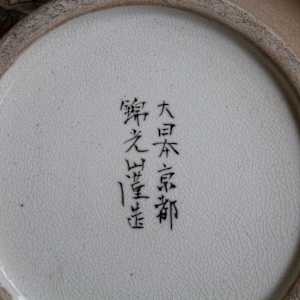 大日本京都
錦光山謹造